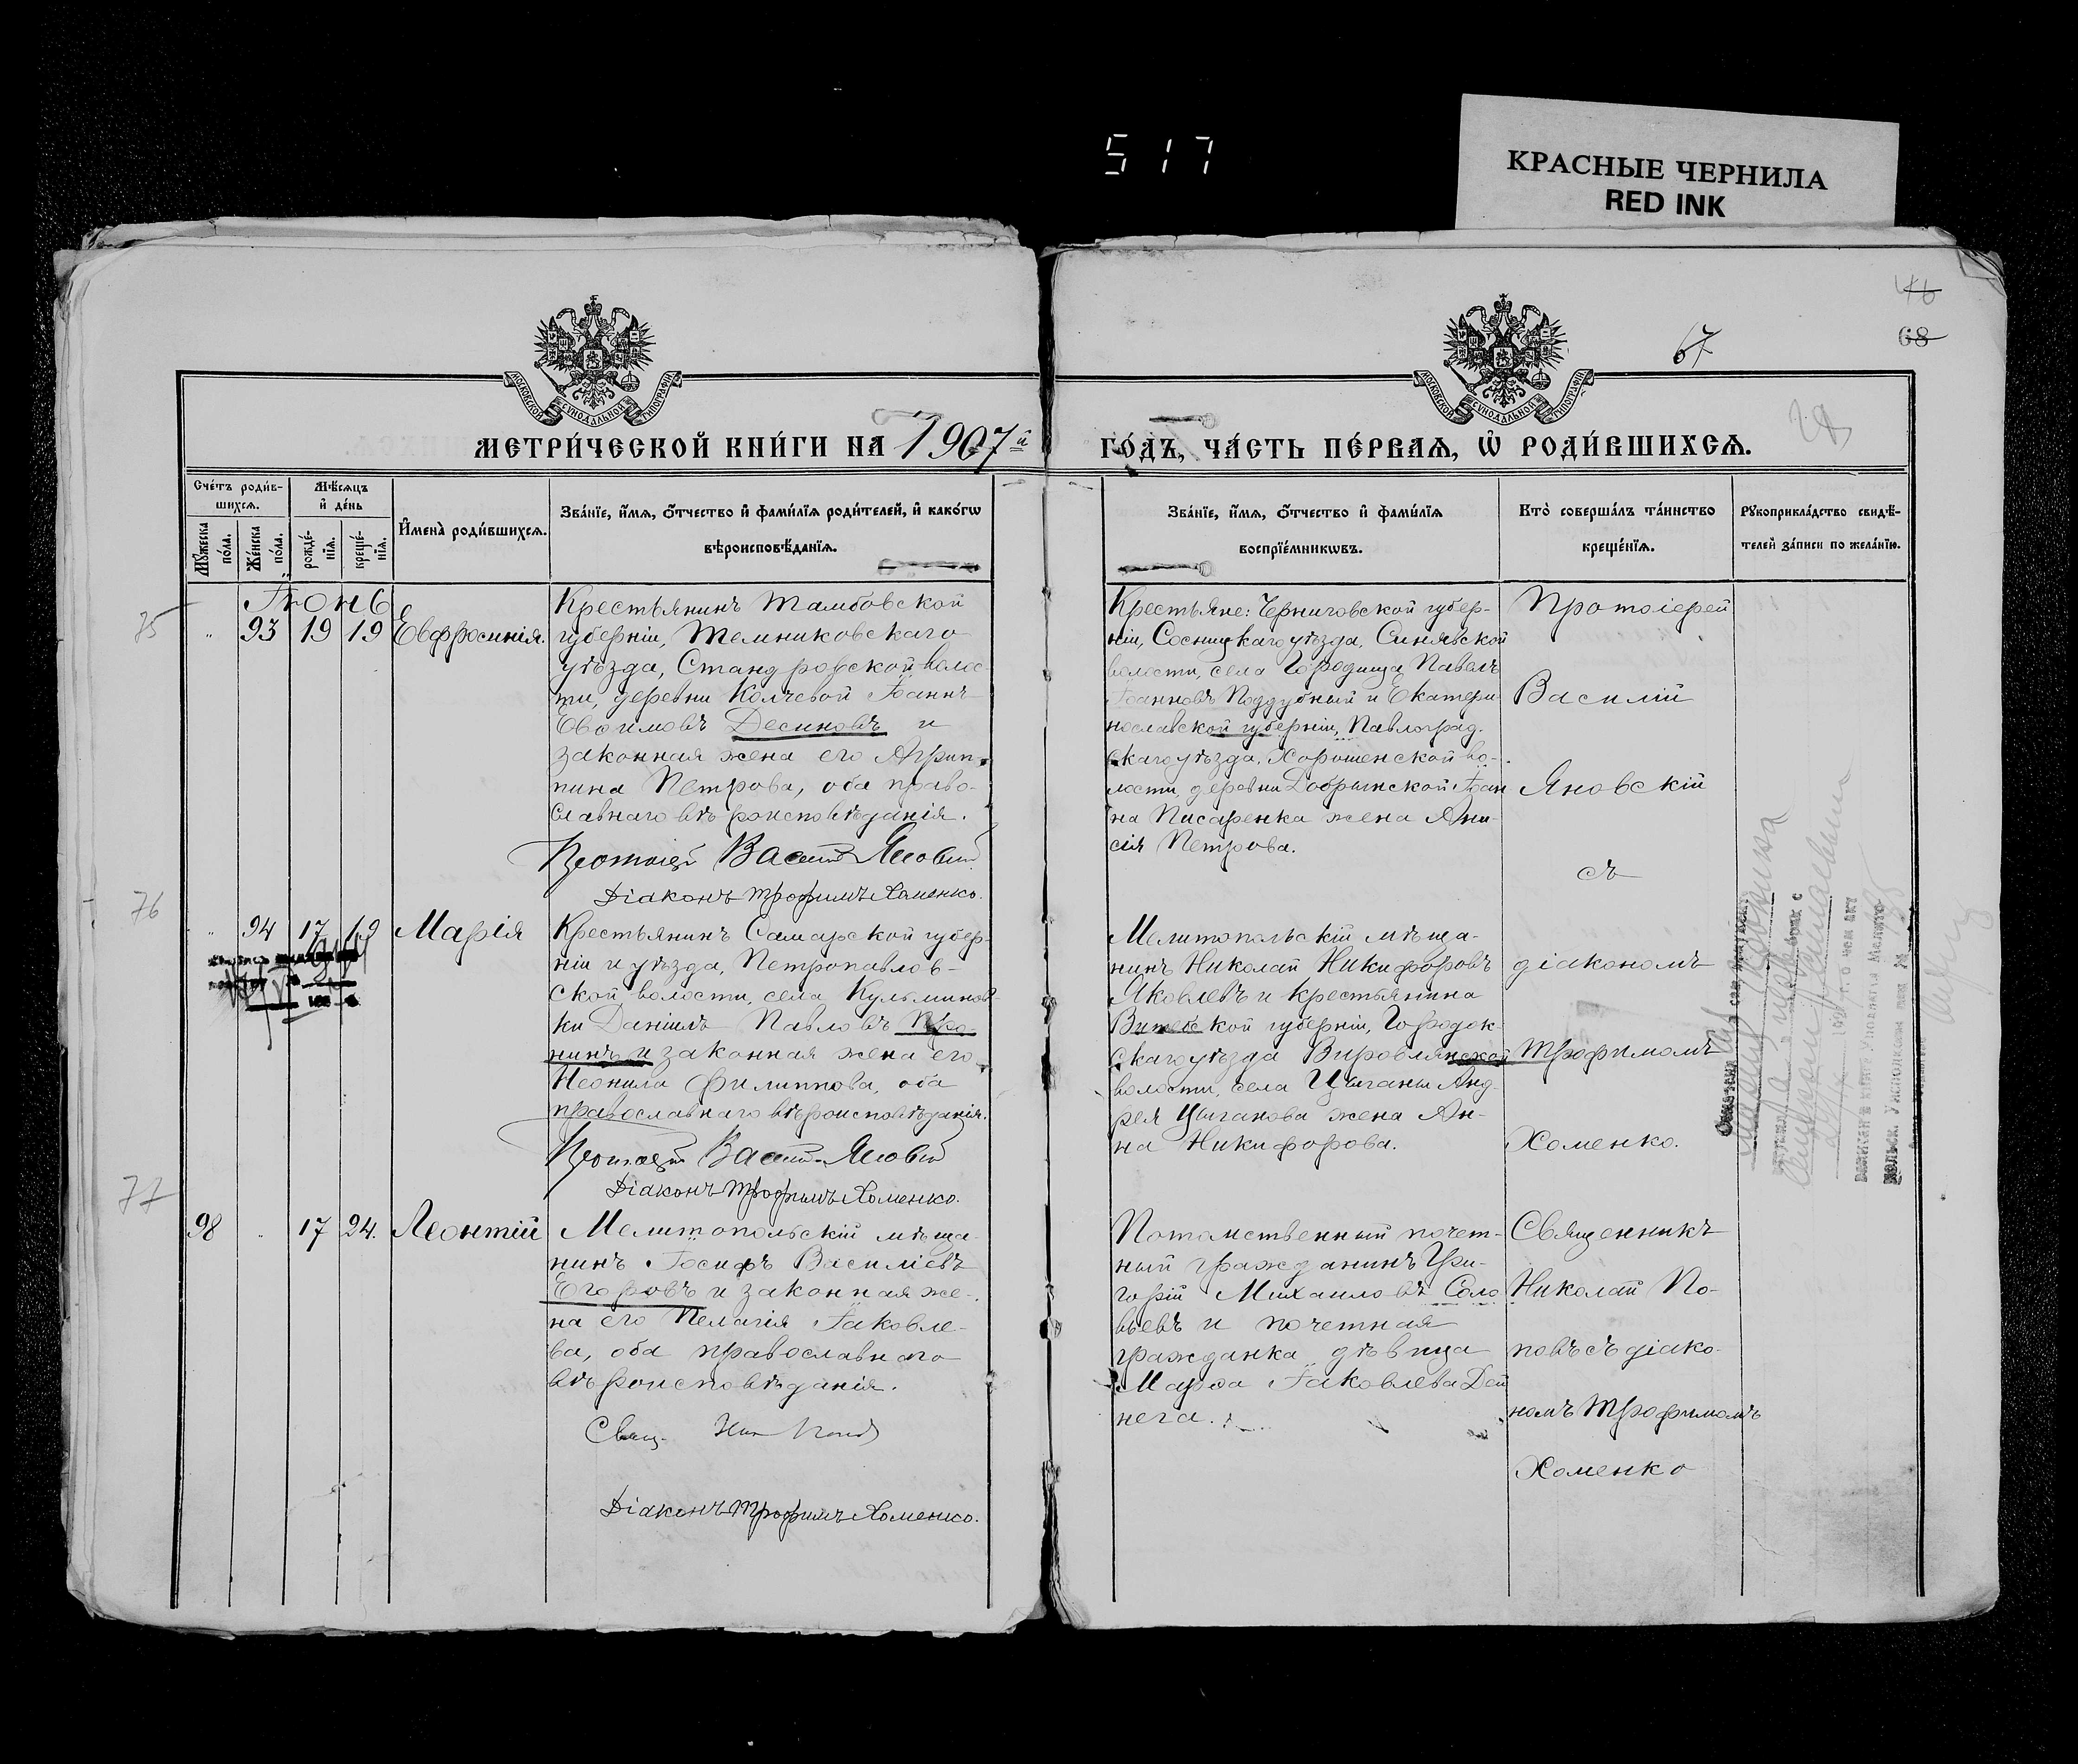 517
КРАСНЫЕ ЧЕРНИЛА
RED INK
46
68
67
МОСКОВСКОЙ СУНОДАЛЬНОЙ ТИПОГРАФІИ
МОСКОВСКОЙ СУНОДАЛЬНОЙ ТИПОГРАФІИ
МЕТРИ́ЧЕСКОЙ КНИ́ГИ НА 1907й
ГО́ДЪ, ЧА́СТЬ ПЕ́РВАѦ, Ѡ РОДИ́ВШИХСѦ.
Сче́тъ роди́в-
шихсѧ.
Мѣ́сѧцъ
и де́нь
Мꙋжеска по́ла.
Же́нска по́ла.
рожде́-
нїѧ.
креще́-
нїѧ.
И҆мена̀ роди́вшихсѧ.
Зва́нїе, и҆́мѧ, ѻ҆́тчество и҆ фами́лїѧ роди́телей, и҆ како́гѡ
вѣроисповѣ́данїѧ.
Зва́нїе, и҆́мѧ, ѻ҆́тчество и҆ фами́лїѧ
воспрїе́мникѡвъ.
Кто̀ соверша́лъ та́инство
креще́нїѧ.
Рꙋкоприкла́дство свидѣ́-
телей за́писи по жела́нїю.
Іюнь
75
93 19 19 Евфросинія.
Крестьянинъ Тамбовской
губерніи, Темниковскаго
уѣзда, Стандровской волос
ти, деревни Колчевой Іоаннъ
Евѳимовъ Десиновъ и
законная жена его Агрип-
пина Петрова, оба право-
славнаго вѣроисповѣданія.
Протоіерей Василій Яновскій
Діаконъ Трофимъ Хоменко.
Крестьяне: Черниговской губер-
ніи, Сосницкаго уѣзда, Синявской
волости, села Городища Павелъ
Іоанновъ Поддубный и Екатери
нославской губерніи, Павлоград-
скаго уѣзда, Хорошенской во-
лости, деревни Добрынской Іоан
на Писаренка жена Ани-
сія Петрова.
Протоіерей
Василій
Яновскій
съ
діакономъ
Трофимомъ
Хоменко.
76
94 17 19 Марія
Крестьянинъ Самарской губер-
ніи и уѣзда, Петропавлов-
ской волости, села Кузьминов
ки Даніилъ Павловъ Про-
нинъ и законная жена его
Неонила Филиппова, оба
православнаго вѣроисповѣданія.
Протоіерей Василій Яновскій
Діаконъ Трофимъ Хоменко.
Мелитопольскій мѣща-
нинъ Николай Никифоровъ
Яковлевъ и крестьянина
Витебской губерніи, Городок-
скаго уѣзда Вировлянской
волости, села Цыганы Анд-
рея Цыганова жена Ан-
на Никифорова.
77
98 17 24. Леонтій
Мелитопольскій мѣща-
нинъ Іосифъ Василіевъ
Егоровъ и законная же-
на его Пелагія Іаковле-
ва, оба православнаго
вѣроисповѣданія.
Свящ. Ник Поповъ
Діаконъ Трофимъ Хоменко.
Потомственный почет-
ный гражданинъ Гри-
горій Михаиловъ Соло
вьевъ и почетная
гражданка дѣвица
Марѳа Іаковлева Дей
нега.
Священникъ
Николай По-
повъ съ діако-
номъ Трофимомъ
Хоменко